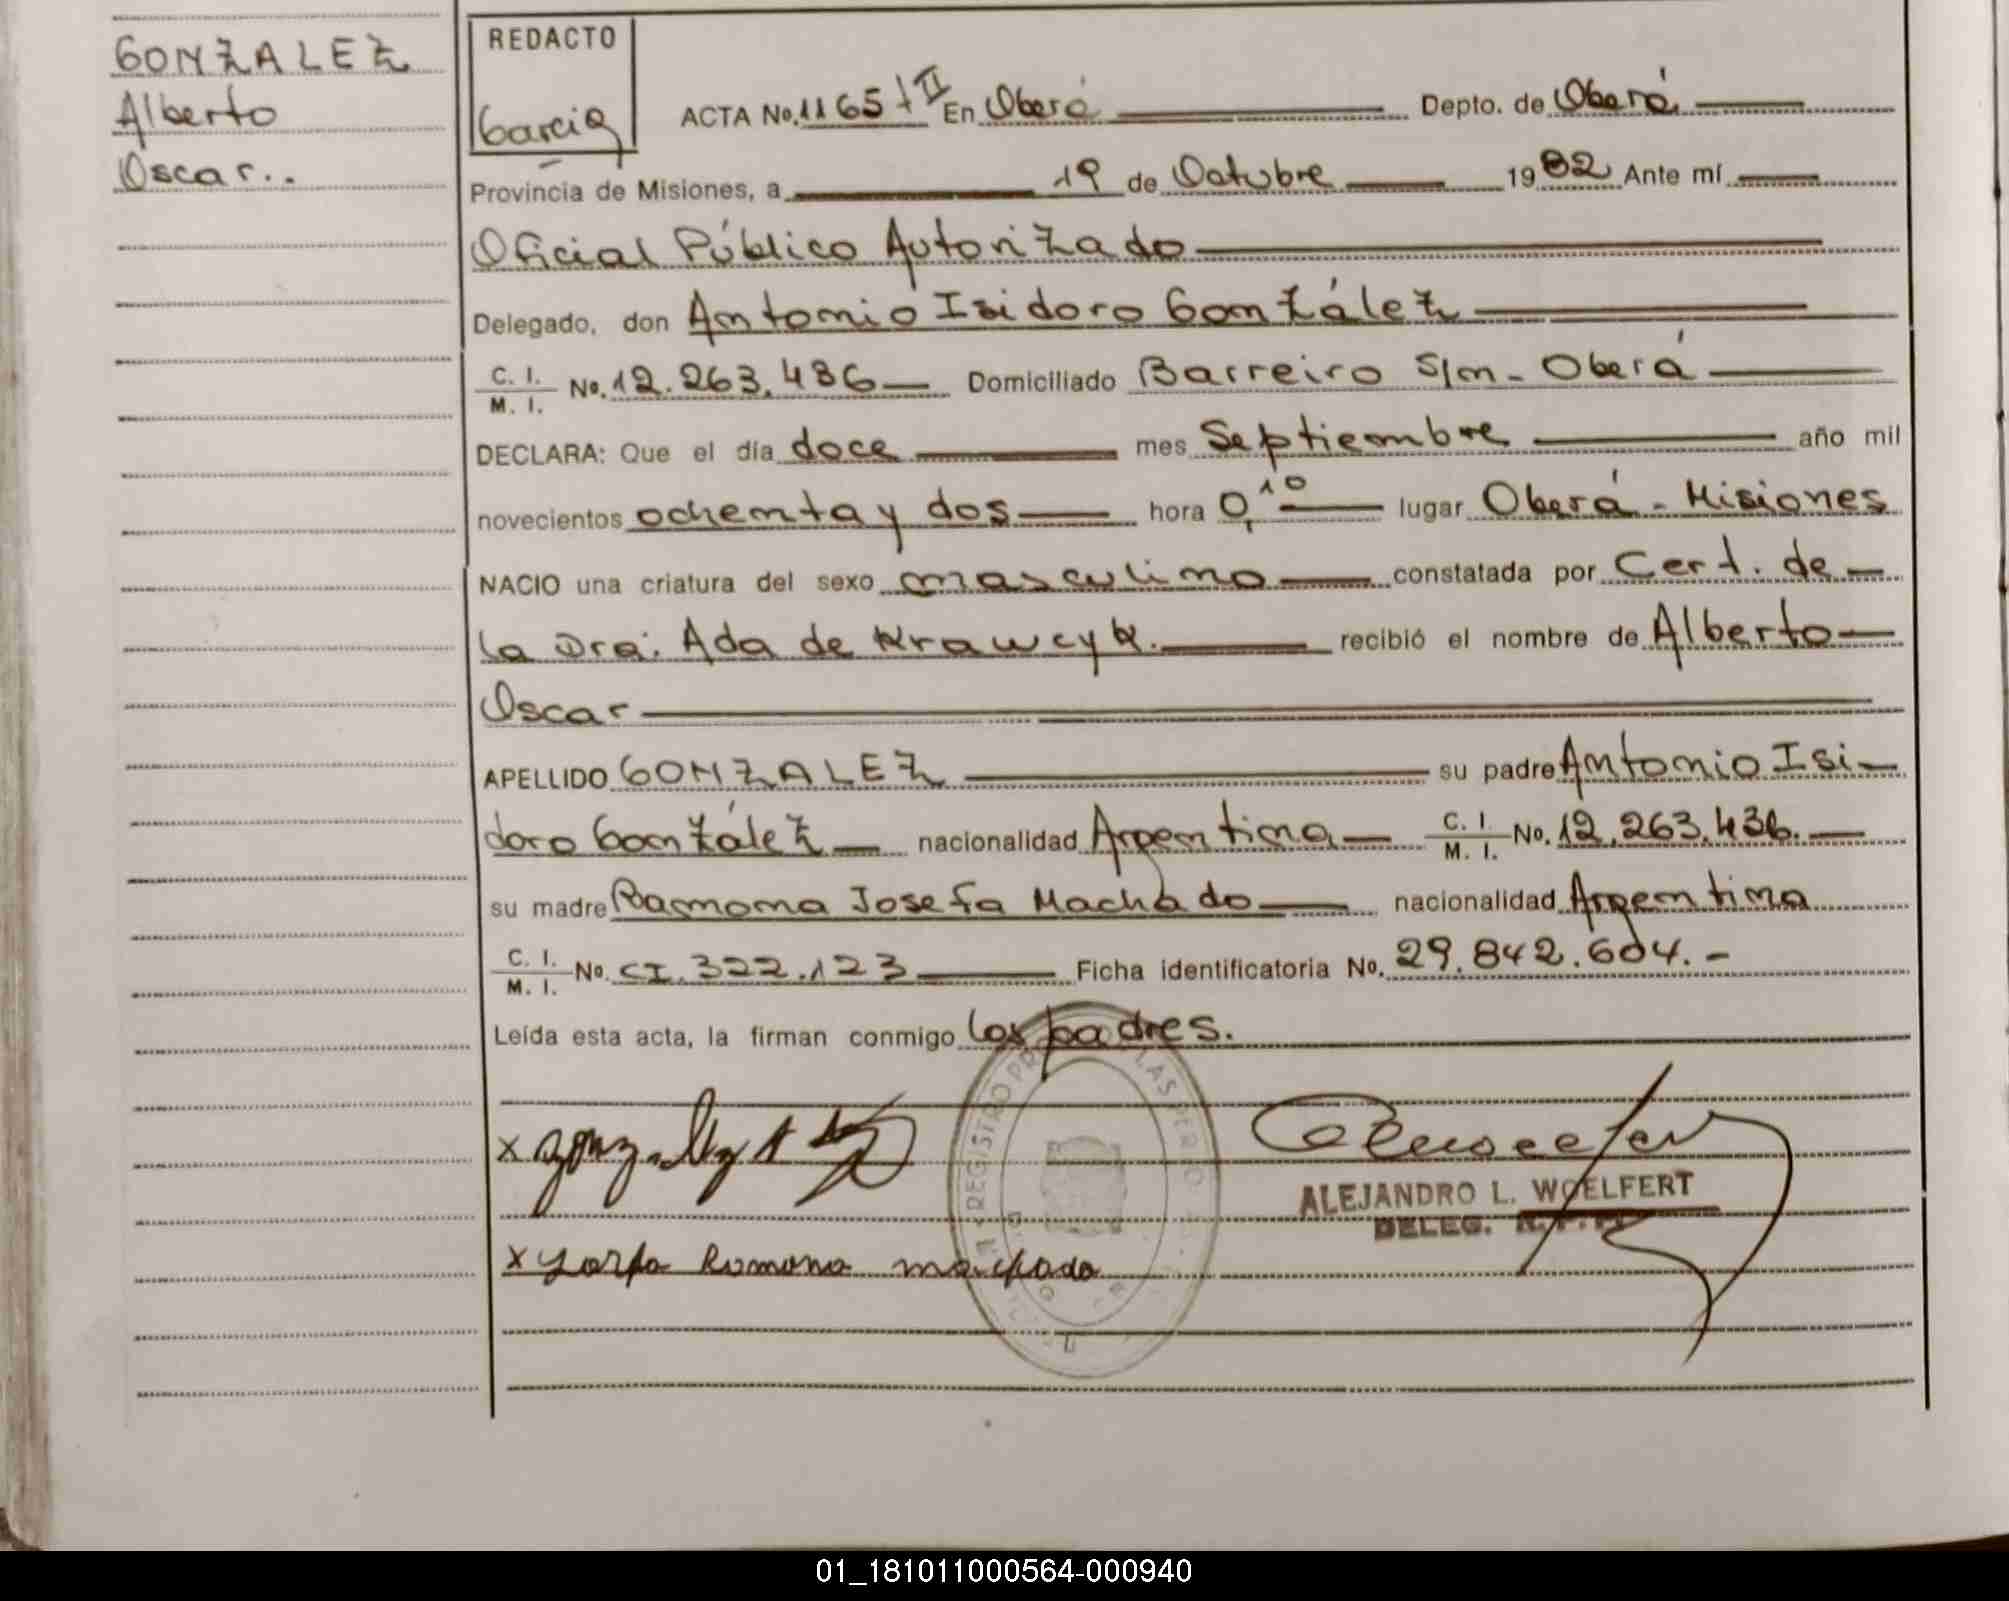 GONZALEZ
Alberto
Oscar..
REDACTO
Garcia
ACTA No. 1165 t II En Oberá Depto. de Oberá
Provincia de Misiones, a 19 de Octubre 1982 Ante mí
Oficial Público Autorizado
Delegado, don Antonio Isidoro González
C. I. M. I. No. 12.263.436 Domiciliado Barreiro S/n - Oberá
DECLARA: Que el día doce mes Septiembre año mil
novecientos ochenta y dos hora 0,10 lugar Oberá - Misiones
NACIO una criatura del sexo masculino constatada por Cert. de
la Dra: Ada de Krawcyk. recibió el nombre de Alberto
Oscar
APELLIDO GONZALEZ su padre Antonio Isi-
doro González nacionalidad Argentina C. I. M. I. No. 12.263.436.
su madre Ramona Josefa Machado nacionalidad Argentina
C. I. M. I. No. CI. 322.123 Ficha identificatoria No. 29.842.604.-
Leída esta acta, la firman conmigo los padres.
REGISTRO PR LAS PER
x
ALEJANDRO L. WOELFERT
DELEG. R.P.P.
x Ramona machado
01_181011000564-000940